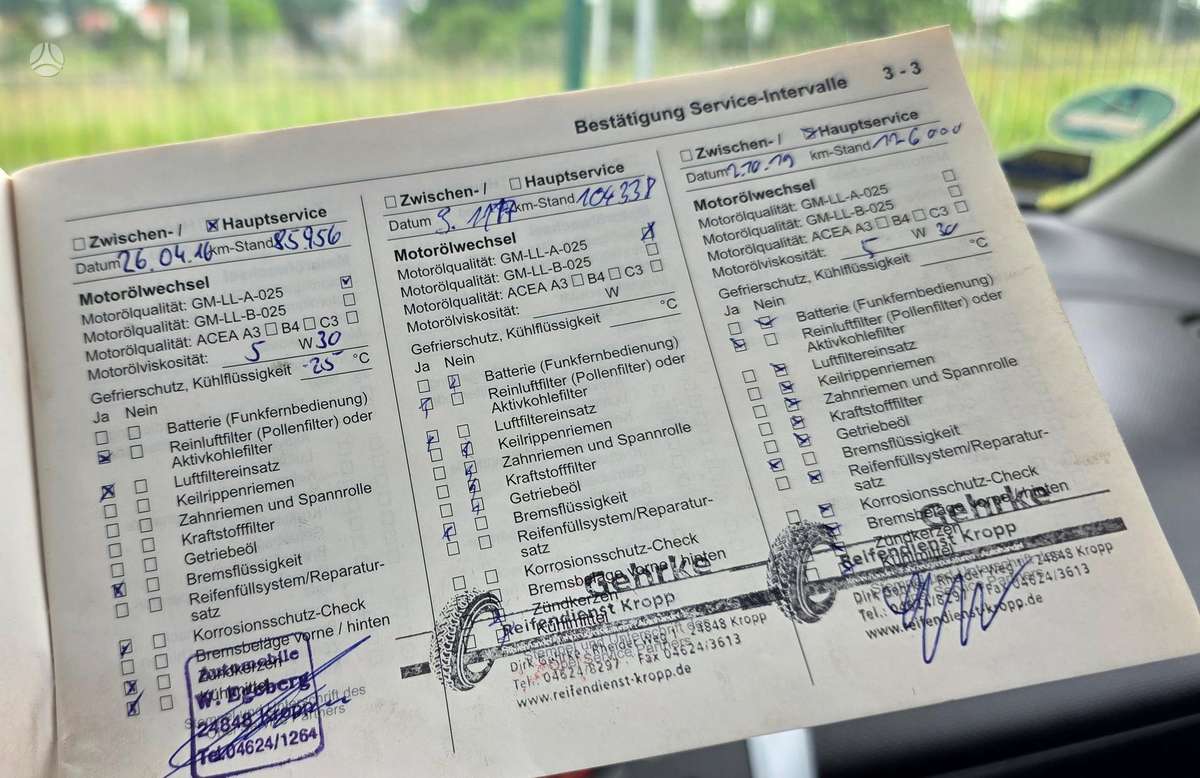 Bestätigung Service-Intervalle 3 - 3
Zwischen- / Hauptservice
Datum 26.04.16 km-Stand 85956
Motorölwechsel
Motorölqualität: GM-LL-A-025
Motorölqualität: GM-LL-B-025
Motorölqualität: ACEA A3 B4 C3
Motorölviskosität: 5 W 30
Gefrierschutz, Kühlflüssigkeit -25 °C
Ja Nein
Batterie (Funkfernbedienung)
Reinluftfilter (Pollenfilter) oder
Aktivkohlefilter
Luftfiltereinsatz
Keilrippenriemen
Zahnriemen und Spannrolle
Kraftstofffilter
Getriebeöl
Bremsflüssigkeit
Reifenfüllsystem/Reparatur-
satz
Korrosionsschutz-Check
Bremsbeläge vorne / hinten
Zündkerzen
Kühlmittel
Automobile
W. Egeberg
24848 Kropp
Tel.04624/1264
Zwischen- / Hauptservice
Datum 3. 11 17 km-Stand 104338
Motorölwechsel
Motorölqualität: GM-LL-A-025
Motorölqualität: GM-LL-B-025
Motorölqualität: ACEA A3 B4 C3
Motorölviskosität: W
Gefrierschutz, Kühlflüssigkeit °C
Ja Nein
Batterie (Funkfernbedienung)
Reinluftfilter (Pollenfilter) oder
Aktivkohlefilter
Luftfiltereinsatz
Keilrippenriemen
Zahnriemen und Spannrolle
Kraftstofffilter
Getriebeöl
Bremsflüssigkeit
Reifenfüllsystem/Reparatur-
satz
Korrosionsschutz-Check
Bremsbeläge vorne / hinten
Zündkerzen
Kühlmittel
Gehrke
Reifendienst Kropp
24848 Kropp
Tel.: 04624/8297 Fax 04624/3613
www.reifendienst-kropp.de
Zwischen- / Hauptservice
Datum 2.10.19 km-Stand 126000
Motorölwechsel
Motorölqualität: GM-LL-A-025
Motorölqualität: GM-LL-B-025
Motorölqualität: ACEA A3 B4 C3
Motorölviskosität: 5 W 30
Gefrierschutz, Kühlflüssigkeit °C
Ja Nein
Batterie (Funkfernbedienung)
Reinluftfilter (Pollenfilter) oder
Aktivkohlefilter
Luftfiltereinsatz
Keilrippenriemen
Zahnriemen und Spannrolle
Kraftstofffilter
Getriebeöl
Bremsflüssigkeit
Reifenfüllsystem/Reparatur-
satz
Korrosionsschutz-Check
Bremsbeläge vorne / hinten
Zündkerzen
Kühlmittel
Gehrke
Reifendienst Kropp
24848 Kropp
Tel.: 04624/8297 Fax 04624/3613
www.reifendienst-kropp.de